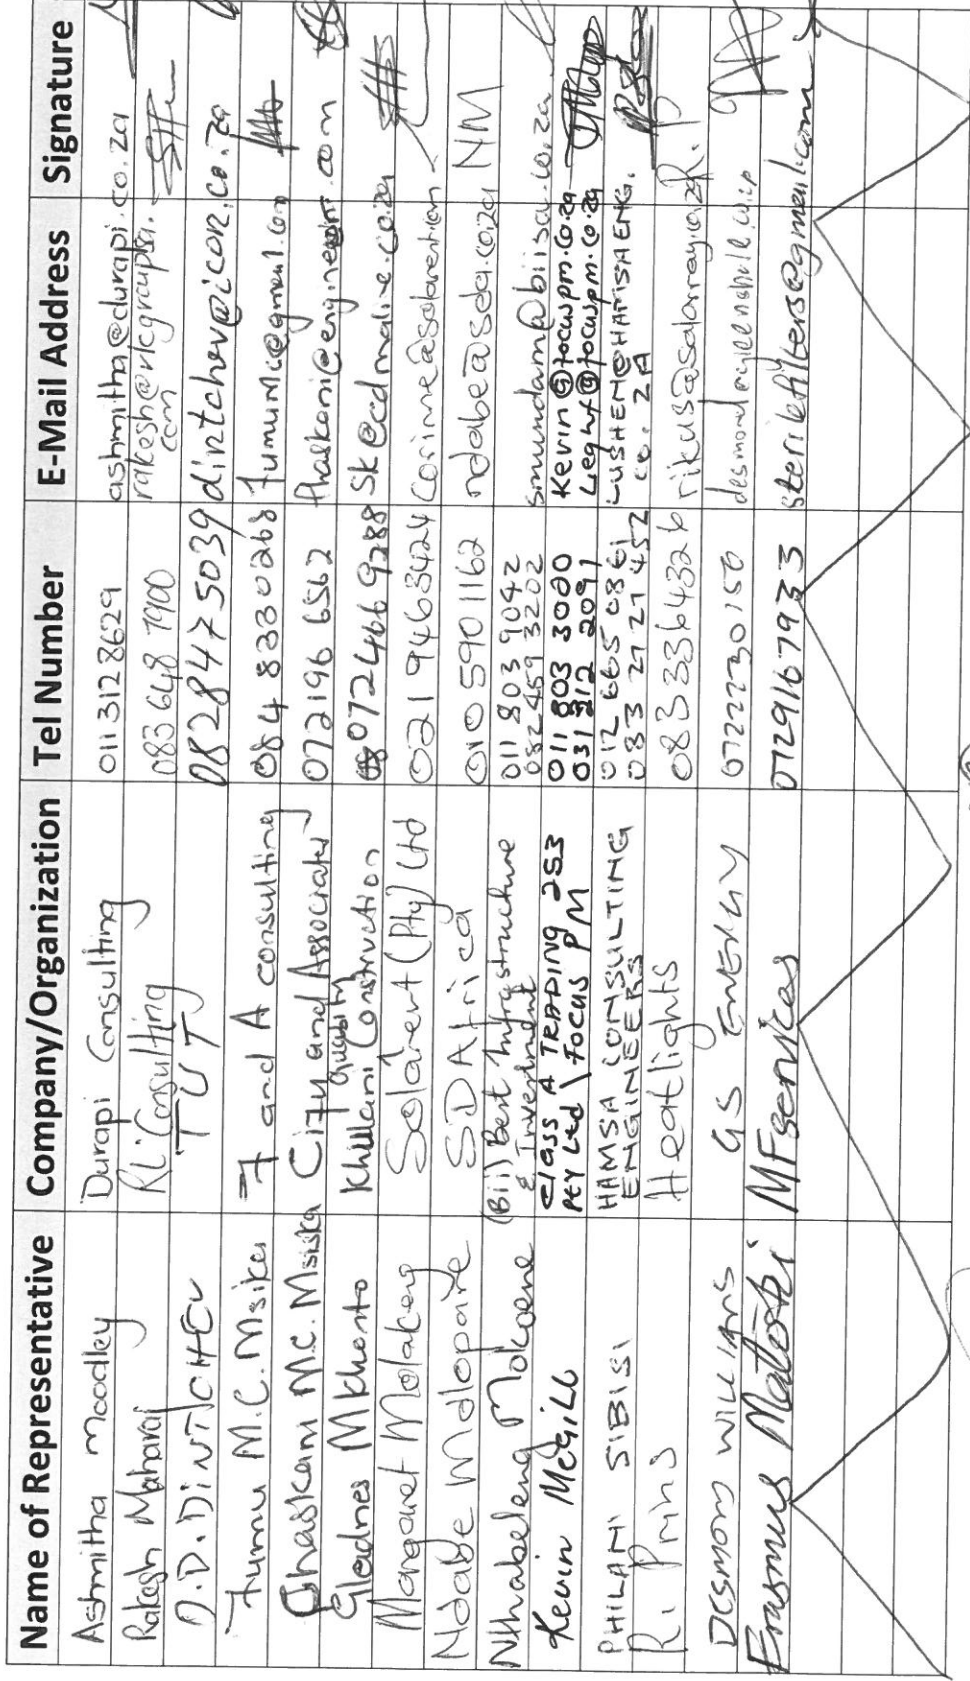 Name of Representative Company/Organization Tel Number E-Mail Address Signature
Ashmitha Moodley Durapi Consulting 011 312 8629 ashmitha@durapi.co.za
Rakesh Maharaj RLConsulting 083 648 7900 rakesh@rlcgroupsa.
com
D.D.DiNTCHEV TUT 0828475039 dintchev@icon.co.za
Fumu M.C. Msiska F and A consulting 084 8330268 fumumc@gmail.com
Chaskani M.C. Msiska City and Associates 072196 6562 .com
Gladnes Mkhonto Khulani Quability Construction 0724669288 sk@cdmalive.co.za
Margaret Molakeng Solairvent (Pty) Ltd 021 9463424 Corinne@solarvention.
Ndabe Mdlopane SDAfrica 010 5901162 ndabe@sda.co.za NM
Nthabeleng Mokoena (Bii) Best Infrastructure 011 803 9042
& Investment 082 459 3202 smundam@biisa.co.za
Kevin McGill Class A TRADING 253 011 803 3000 Kevin@focuspm.co.za
PTY Ltd \ Focus PM 031 312 2091 @focuspm.co.za
PHILANI SIBISI HAMSA CONSULTING 012 665 0361 LUSHEN@HAMSAENG.
ENGINEERS 083 27 27 452 CO.ZA
R. Prins Heatlights 0833364326 rikus@solarray.co.za R.P
DESMOND WILLIAMS GS ENERGY 0722230150
Erasmus MF services 0729167933 sterilefilters@gmail.com